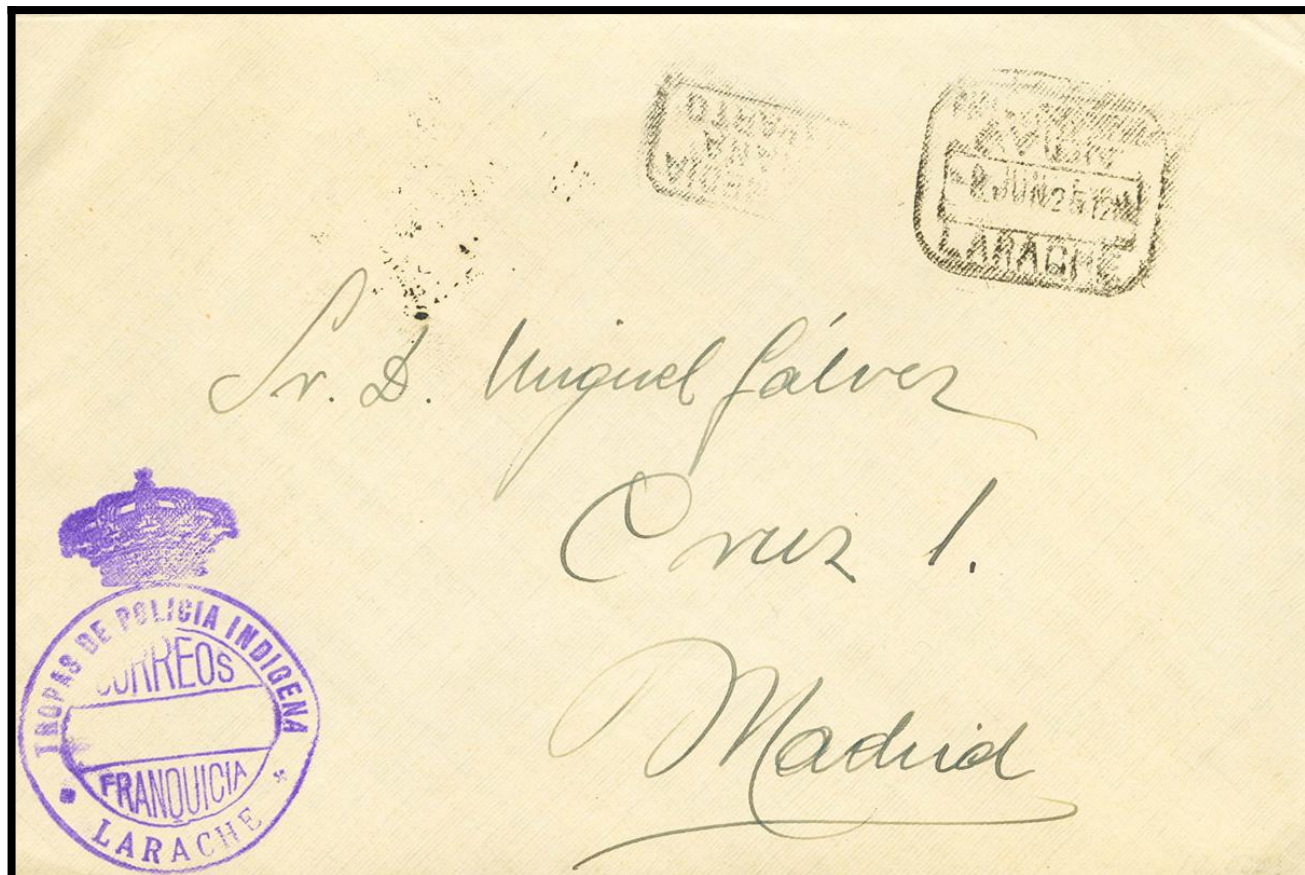 AVION
JUN 25 12
LARACHE
Sr. D. Miguel Gálvez
Cruz 1.
Madrid
TROPAS DE POLICIA INDIGENA
CORREOS
FRANQUICIA
LARACHE